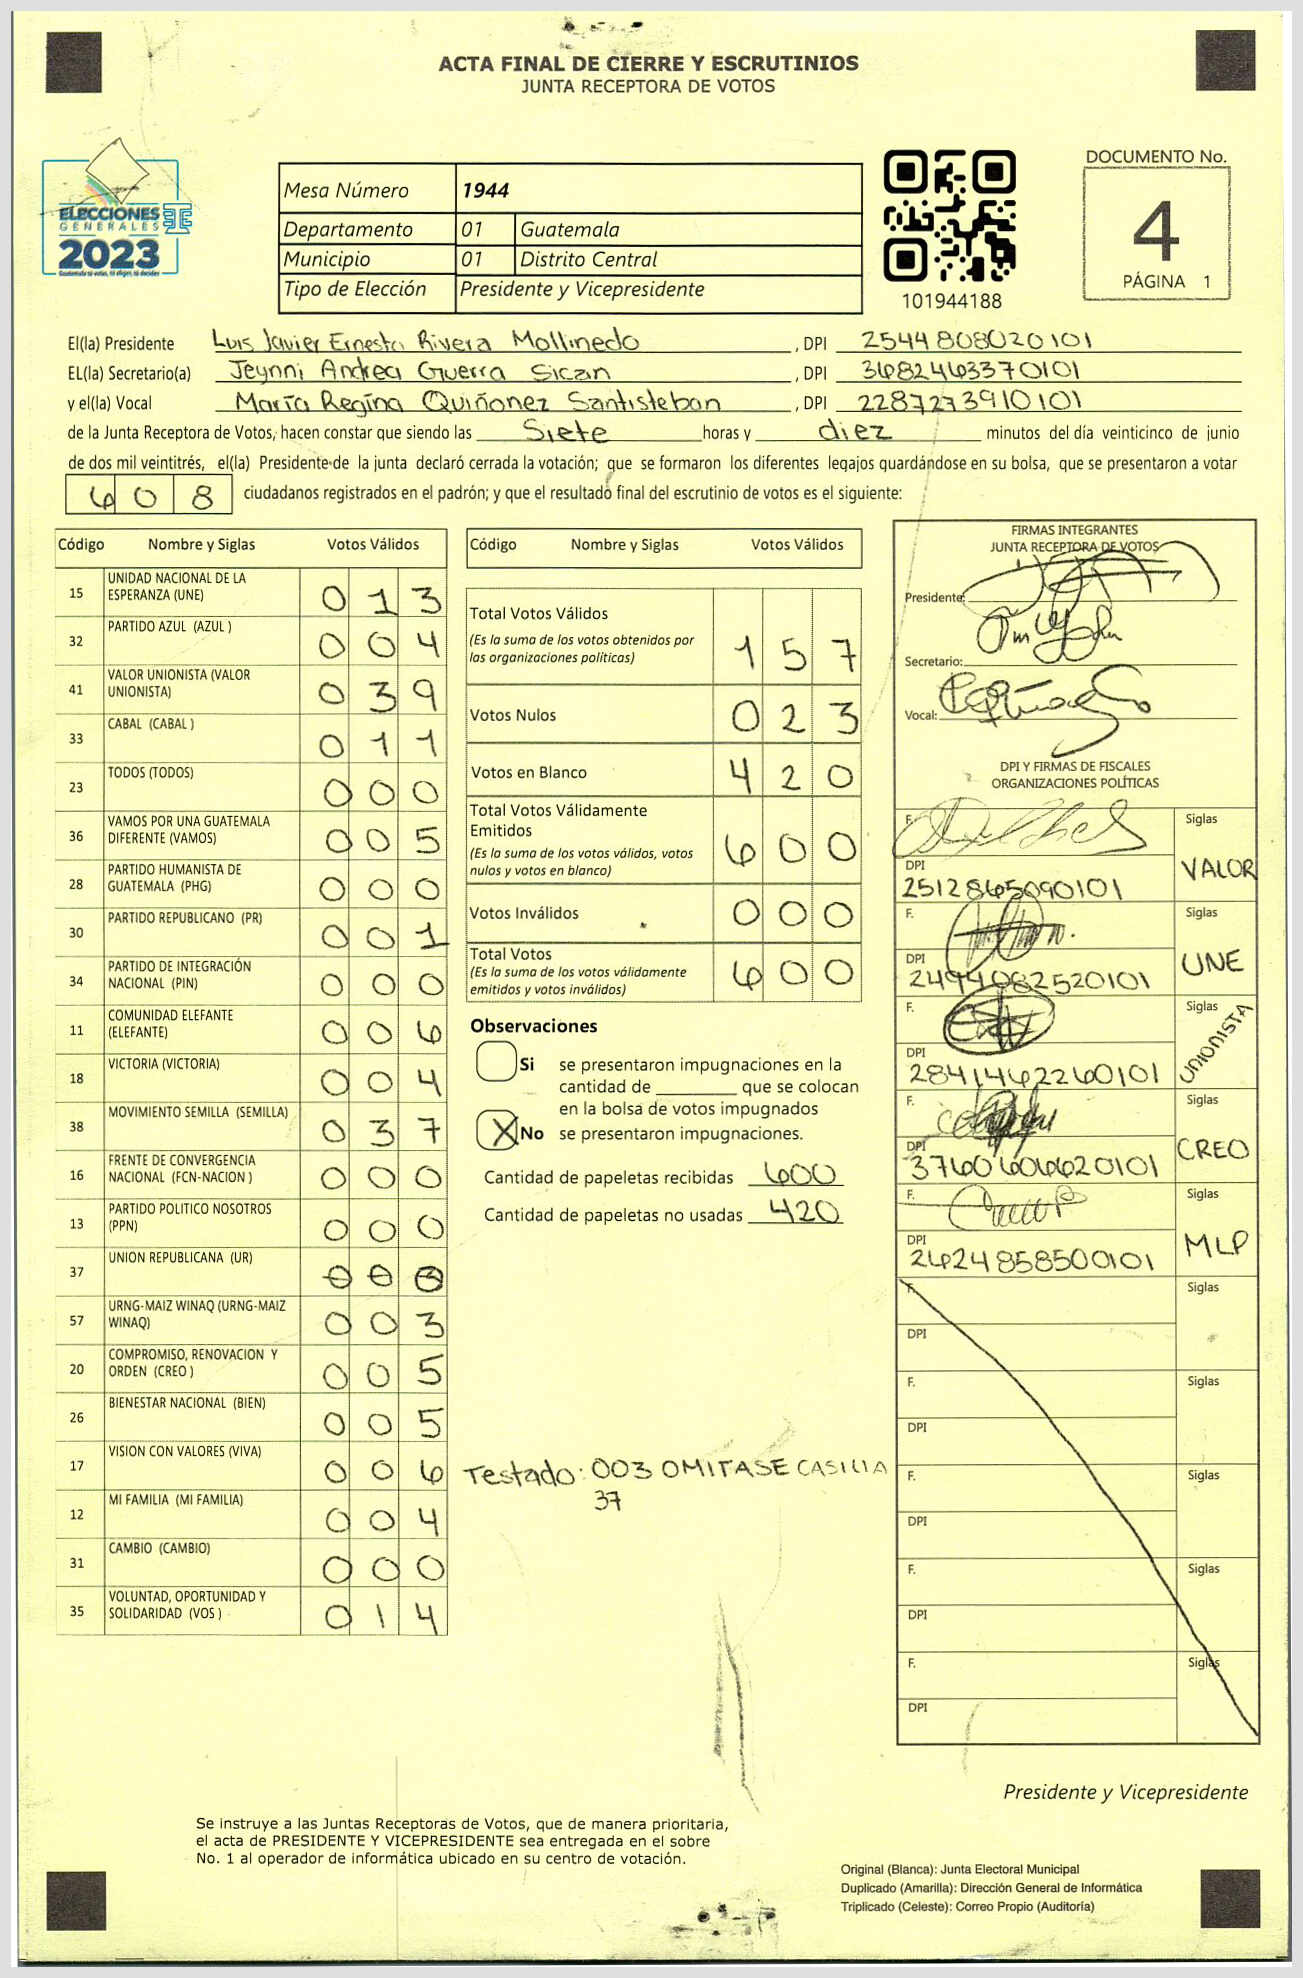 ACTA FINAL DE CIERRE Y ESCRUTINIOS
JUNTA RECEPTORA DE VOTOS
ELECCIONES
GENERALES
2023
Guatemala tú votas, tú eliges, tú decides
Mesa Número 1944
Departamento 01 Guatemala
Municipio 01 Distrito Central
Tipo de Elección Presidente y Vicepresidente
101944188
DOCUMENTO No.
4
PÁGINA 1
El(la) Presidente Luis Javier Ernesto Rivera Mollinedo , DPI 2544808020101
EL(la) Secretario(a) Jeynni Andrea Guerra Sican , DPI 3682463370101
y el(la) Vocal María Regina Quiñonez Santisteban , DPI 2287273910101
de la Junta Receptora de Votos, hacen constar que siendo las Siete horas y diez minutos del día veinticinco de junio
de dos mil veintitrés, el(la) Presidente de la junta declaró cerrada la votación; que se formaron los diferentes legajos guardándose en su bolsa, que se presentaron a votar
608 ciudadanos registrados en el padrón; y que el resultado final del escrutinio de votos es el siguiente:
Código Nombre y Siglas Votos Válidos
15 UNIDAD NACIONAL DE LA ESPERANZA (UNE) 013
32 PARTIDO AZUL (AZUL ) 004
41 VALOR UNIONISTA (VALOR UNIONISTA) 039
33 CABAL (CABAL ) 011
23 TODOS (TODOS) 000
36 VAMOS POR UNA GUATEMALA DIFERENTE (VAMOS) 005
28 PARTIDO HUMANISTA DE GUATEMALA (PHG) 000
30 PARTIDO REPUBLICANO (PR) 001
34 PARTIDO DE INTEGRACIÓN NACIONAL (PIN) 000
11 COMUNIDAD ELEFANTE (ELEFANTE) 006
18 VICTORIA (VICTORIA) 004
38 MOVIMIENTO SEMILLA (SEMILLA) 037
16 FRENTE DE CONVERGENCIA NACIONAL (FCN-NACION ) 000
13 PARTIDO POLITICO NOSOTROS (PPN) 000
37 UNION REPUBLICANA (UR)
57 URNG-MAIZ WINAQ (URNG-MAIZ WINAQ) 003
20 COMPROMISO, RENOVACION Y ORDEN (CREO ) 005
26 BIENESTAR NACIONAL (BIEN) 005
17 VISION CON VALORES (VIVA) 006
12 MI FAMILIA (MI FAMILIA) 004
31 CAMBIO (CAMBIO) 000
35 VOLUNTAD, OPORTUNIDAD Y SOLIDARIDAD (VOS ) 014
Código Nombre y Siglas Votos Válidos
Total Votos Válidos
(Es la suma de los votos obtenidos por
las organizaciones políticas) 157
Votos Nulos 023
Votos en Blanco 420
Total Votos Válidamente
Emitidos
(Es la suma de los votos válidos, votos
nulos y votos en blanco) 600
Votos Inválidos 000
Total Votos
(Es la suma de los votos válidamente
emitidos y votos inválidos) 600
Observaciones
Si se presentaron impugnaciones en la
cantidad de ________ que se colocan
en la bolsa de votos impugnados
X No se presentaron impugnaciones.
Cantidad de papeletas recibidas 600
Cantidad de papeletas no usadas 420
Testado: 003 OMITASE CASILLA
37
FIRMAS INTEGRANTES
JUNTA RECEPTORA DE VOTOS
Presidente:
Secretario:
Vocal:
DPI Y FIRMAS DE FISCALES
ORGANIZACIONES POLÍTICAS
F. Siglas
DPI VALOR
2512865090101
F. Siglas
DPI UNE
2494082520101
F. Siglas
DPI UNIONISTA
2841462260101
F. Siglas
DPI CREO
3760606620101
F. Siglas
DPI MLP
2624858500101
F. Siglas
DPI
F. Siglas
DPI
F. Siglas
DPI
F. Siglas
DPI
F. Siglas
DPI
Presidente y Vicepresidente
Se instruye a las Juntas Receptoras de Votos, que de manera prioritaria,
el acta de PRESIDENTE Y VICEPRESIDENTE sea entregada en el sobre
No. 1 al operador de informática ubicado en su centro de votación.
Original (Blanca): Junta Electoral Municipal
Duplicado (Amarilla): Dirección General de Informática
Triplicado (Celeste): Correo Propio (Auditoría)